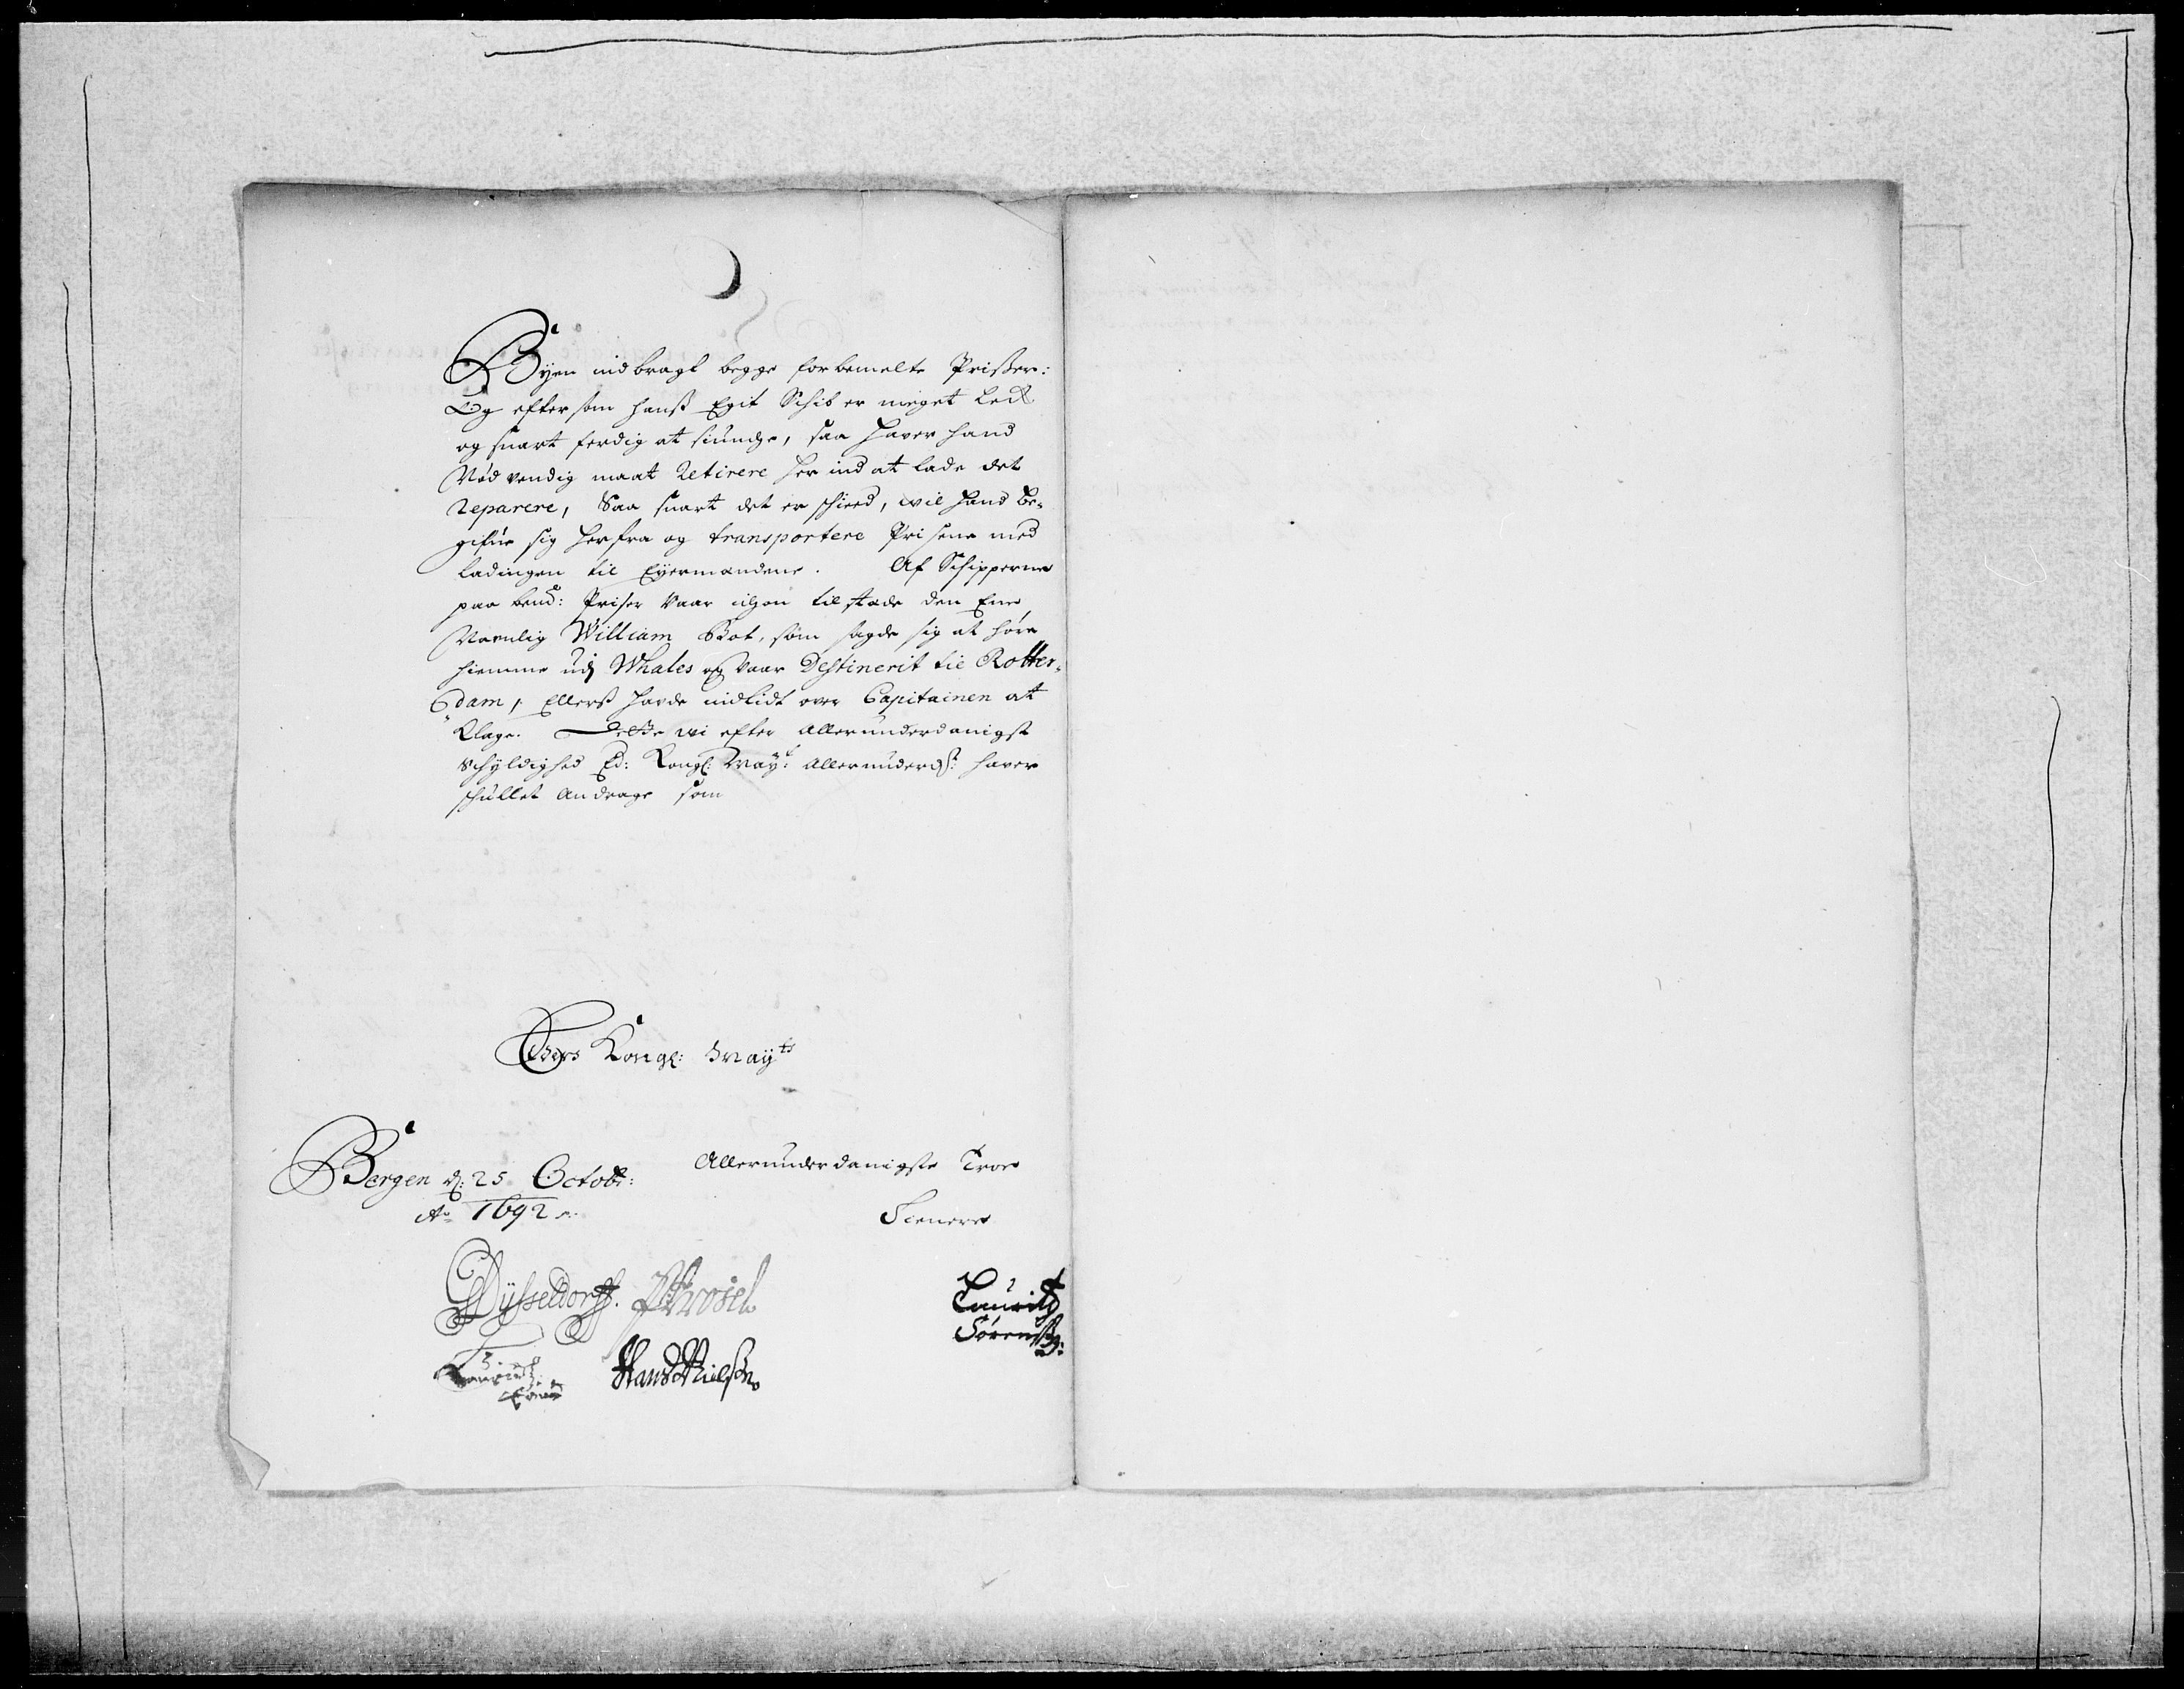 Byen indbragt begge forbemelte Prißer:
Og eftersom hanß Egit Schib er meget Leck
og snart ferdig at siuncke, saa haver hand
Nødvendig maat Retirere her ind at lade det
Reparere, Saa snart det er schieed, wil hand Be-
gifve sig herfra og transportere Prisene med
ladingen til Eyermændene. Af Schipperne
paa bemd: Priser Vaar iche tilstæde den Ene
Naunlig William Bot, som sagde sig at høre
hiemme udj Whales og Vaar Destinerit til Rotter-
dam, Ellers hafde indtidt over Capitainen at
Klage. Dette wi efter allerunderdanigst
Schyldighed Ed: Kongl: May: allerunderdst: haver
schullet andrage som
Eders Kongl: Mayts
Allerunderdanigste Troe
Bergen d: 25 Octobr:
Ao 1692
Tienere
Dysseldorff.
Lauritz
Sørenß:
Lauridtz
Hans Nielsen